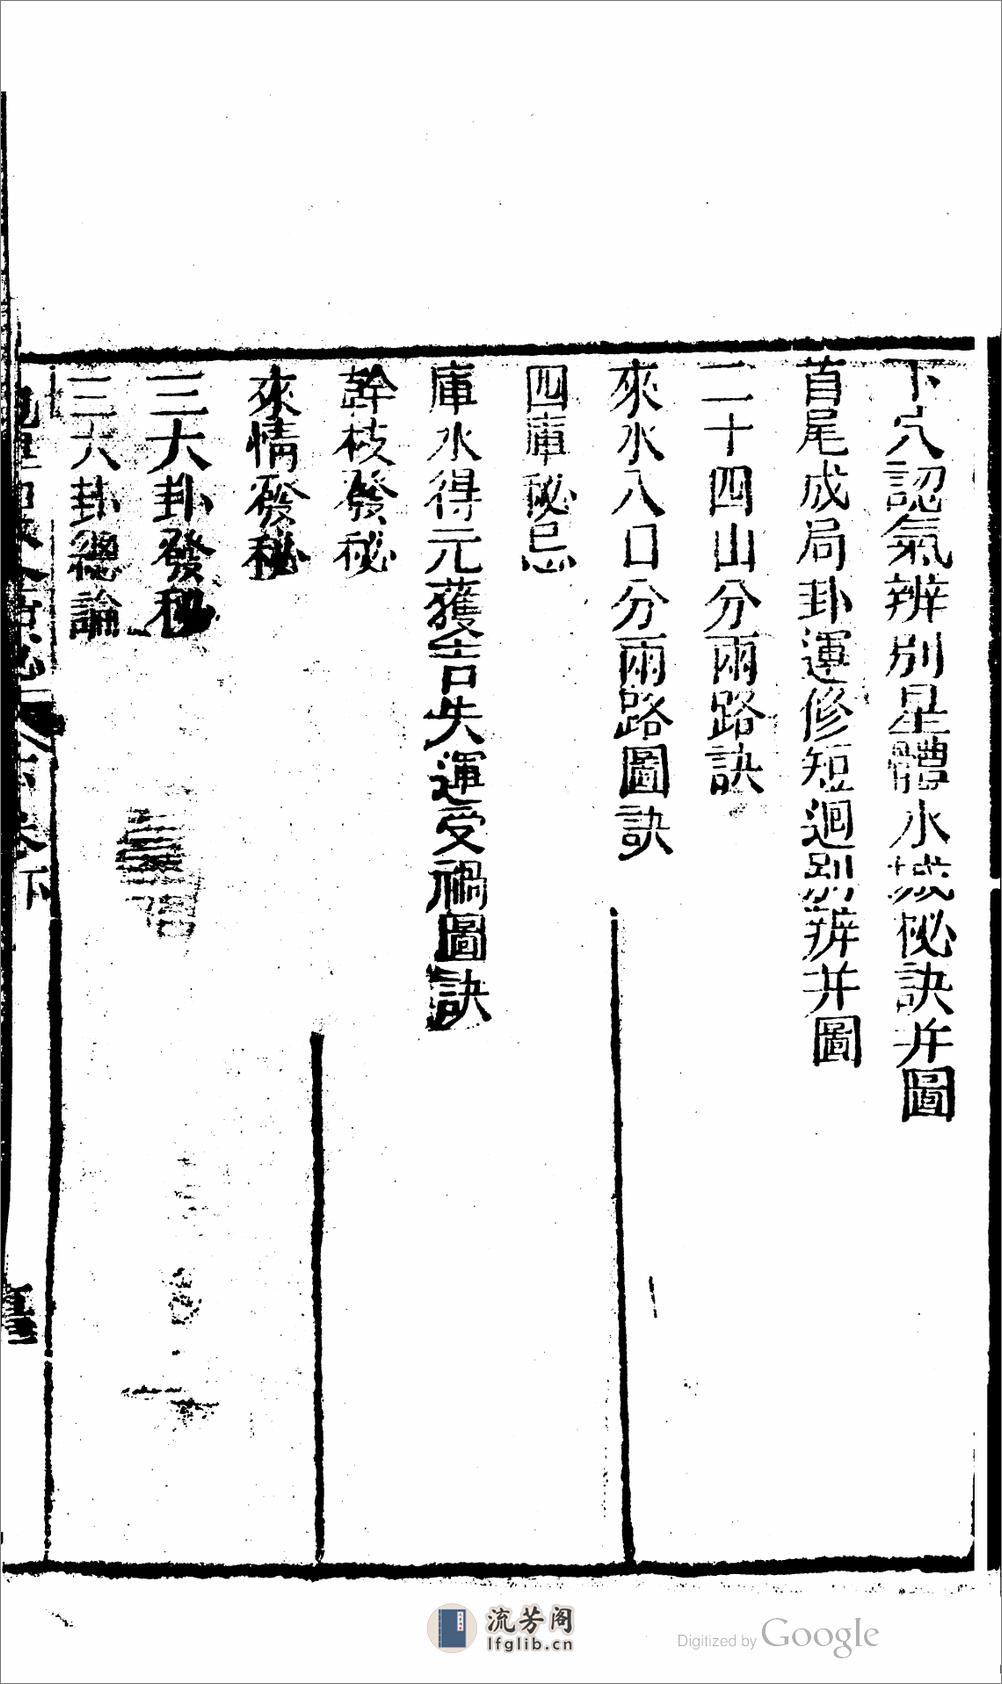 下穴認氣辨別星體水城秘訣并圖
首尾成局卦運修短迥別辨并圖
二十四山分兩路訣
來水入口分兩路圖訣
四庫秘忌
庫水得元獲吉失運受禍圖訣
幹枝發秘
來情發秘
三大卦發秘
三大卦總論
卷下
流芳阁
lfglib.cn
Digitized by Google